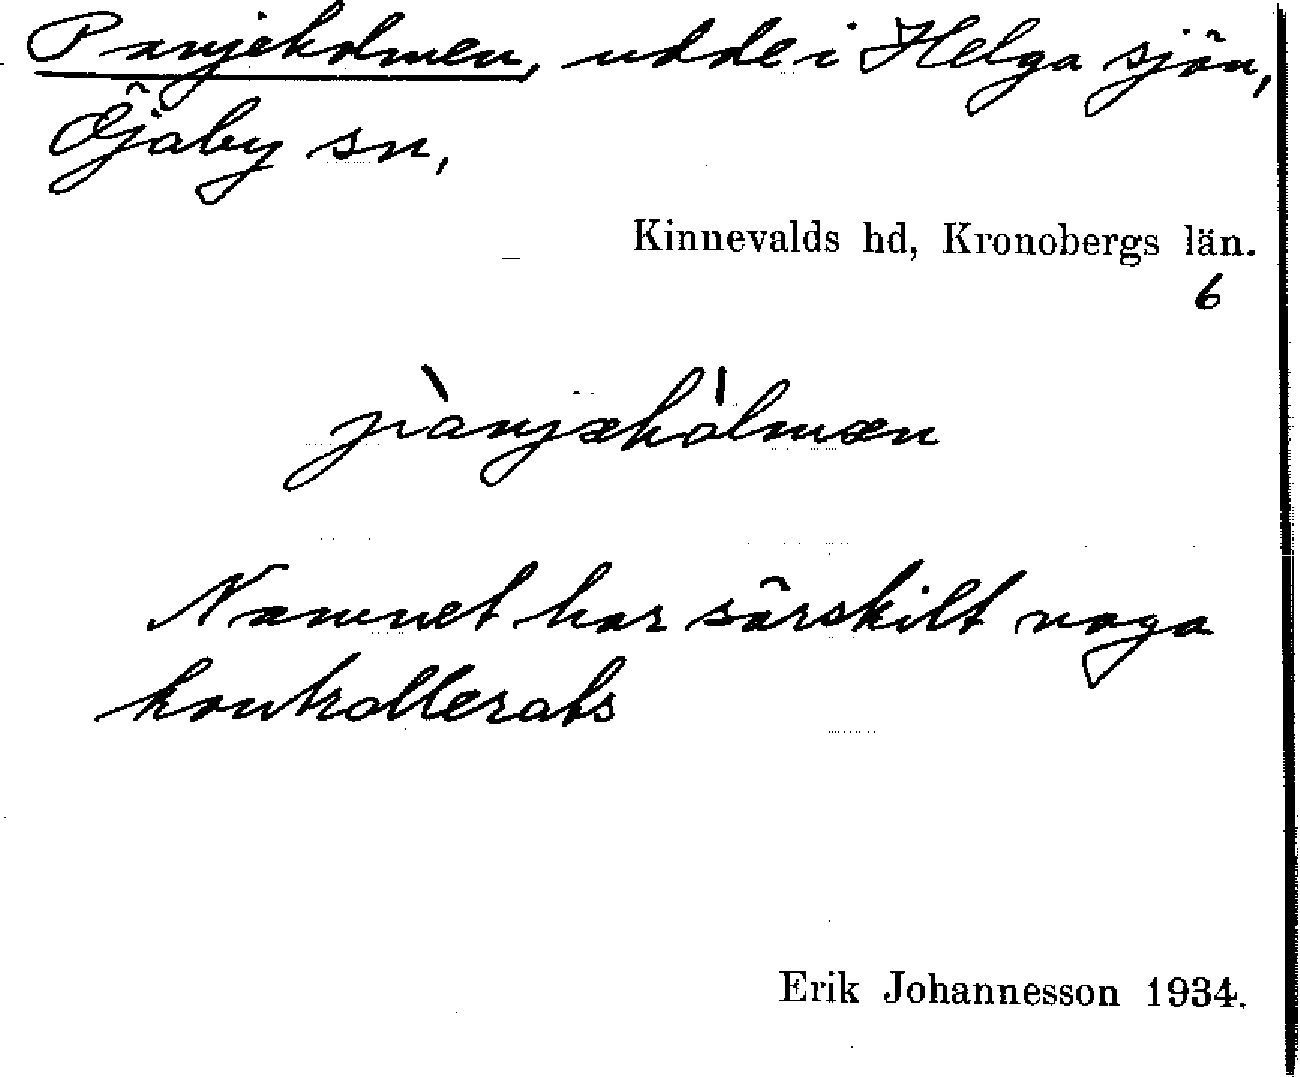 Panjeholmen, udde i Helga sjön,
Öjaby sn,
Kinnevalds hd, Kronobergs län.
6
pànjəhólmən
Namnet har särskilt noga
kontrollerats
Erik Johannesson 1934.